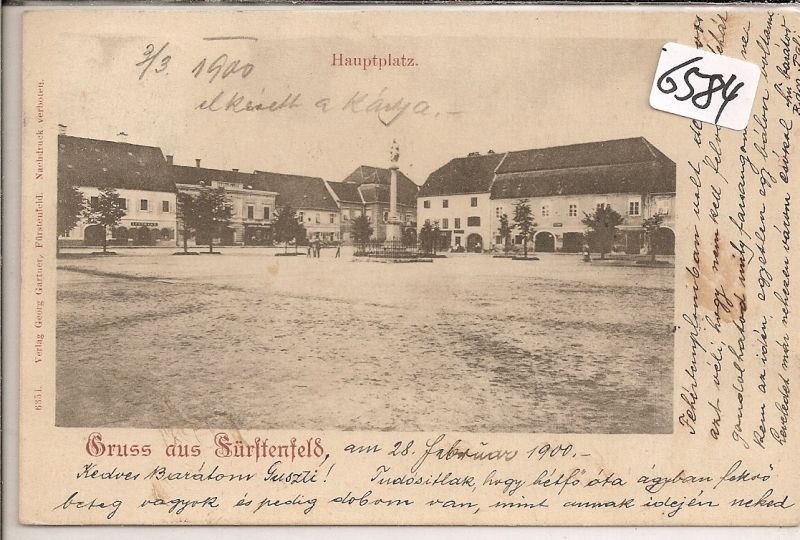 2/3 1900
elkésett a kártya.-
Hauptplatz.
6584
6351. Verlag Georg Gartner, Fürstenfeld. Nachdruck verboten.
Gruss aus Fürstenfeld, am 28. Februar 1900.-
Kedves Barátom Guszti! Tudósítlak, hogy hétfő óta ágyban fekvő
beteg vagyok és pedig dobom van, mint annak idején neked
Fehértemplomban volt de
azt véli, hogy nem kell félni
gondolhatod mily farsangom
kem az idén egyetlen egy bálon voltam
Leveledet már nehezen várva csókol hű barátod